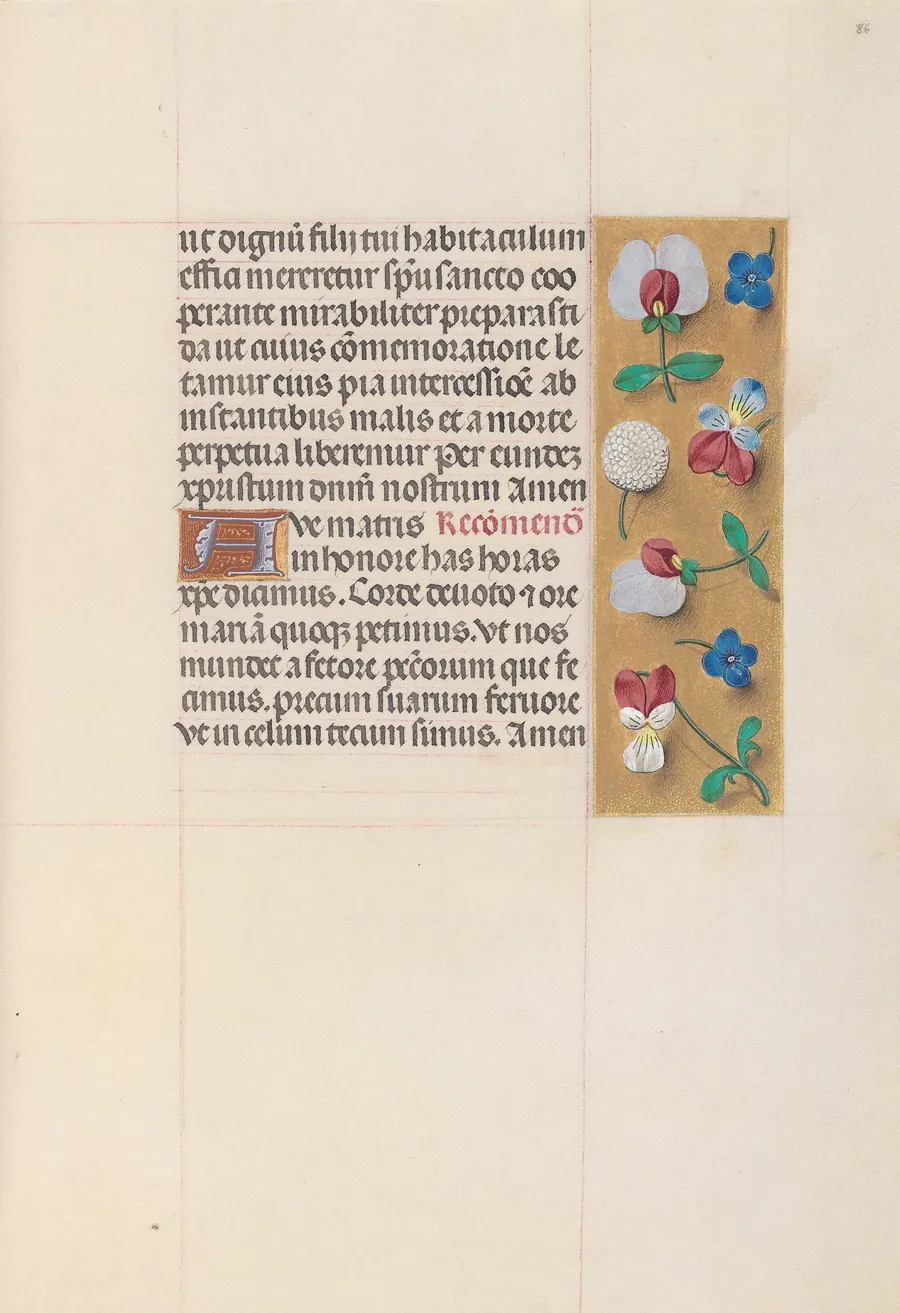 86
ut dignū filij tui habitaculum
effici mereretur sp̄u sancto coo
perante mirabiliter preparasti
da ut cuius cōmemoratione le
tamur eius pia intercessiōe ab
instantibus malis et a morte
perpetua liberemur Per eundez
xpristum dnm̄ nostrum Amen
Ave matris Recōmendō
in honore has horas
xp̄e dicimus. Corde deuoto ⁊ ore
mariā quoqꝫ petimus. vt nos
mundet a fetore pēcorum que fe
cimus. precum suarum feruore
vt in celum tecum simus. Amen